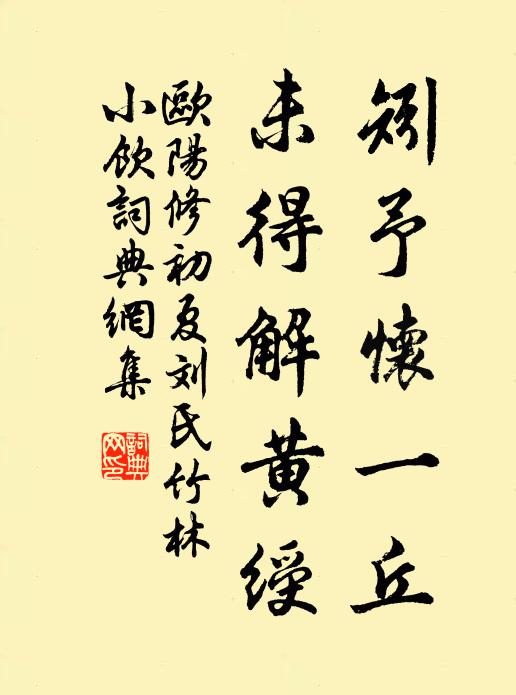 矧予懷一丘
未得解黄綬
歐陽修初夏刘氏竹林
小飲詞典網集
詞典
网印